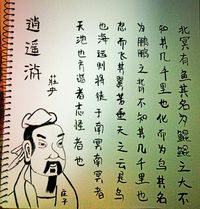 北冥有魚其名為鯤鯤之大不
知其几千里也化而为鸟其名
为鵬鵬之背不知其几千里也
怒而飞其翼若垂天之云是鸟
也海运则将徙于南冥南冥者
天池也齐谐者志怪者也
逍遥游
庄子